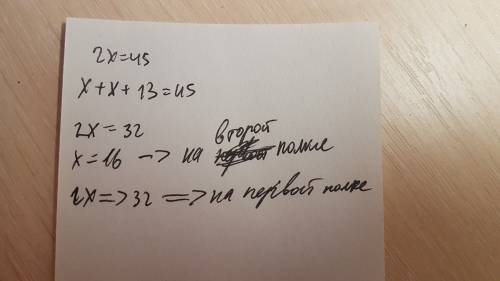 2x=45
x+x+13=45
2x=32
второй
x=16 –> на полке
2x=>32 => на первой полке